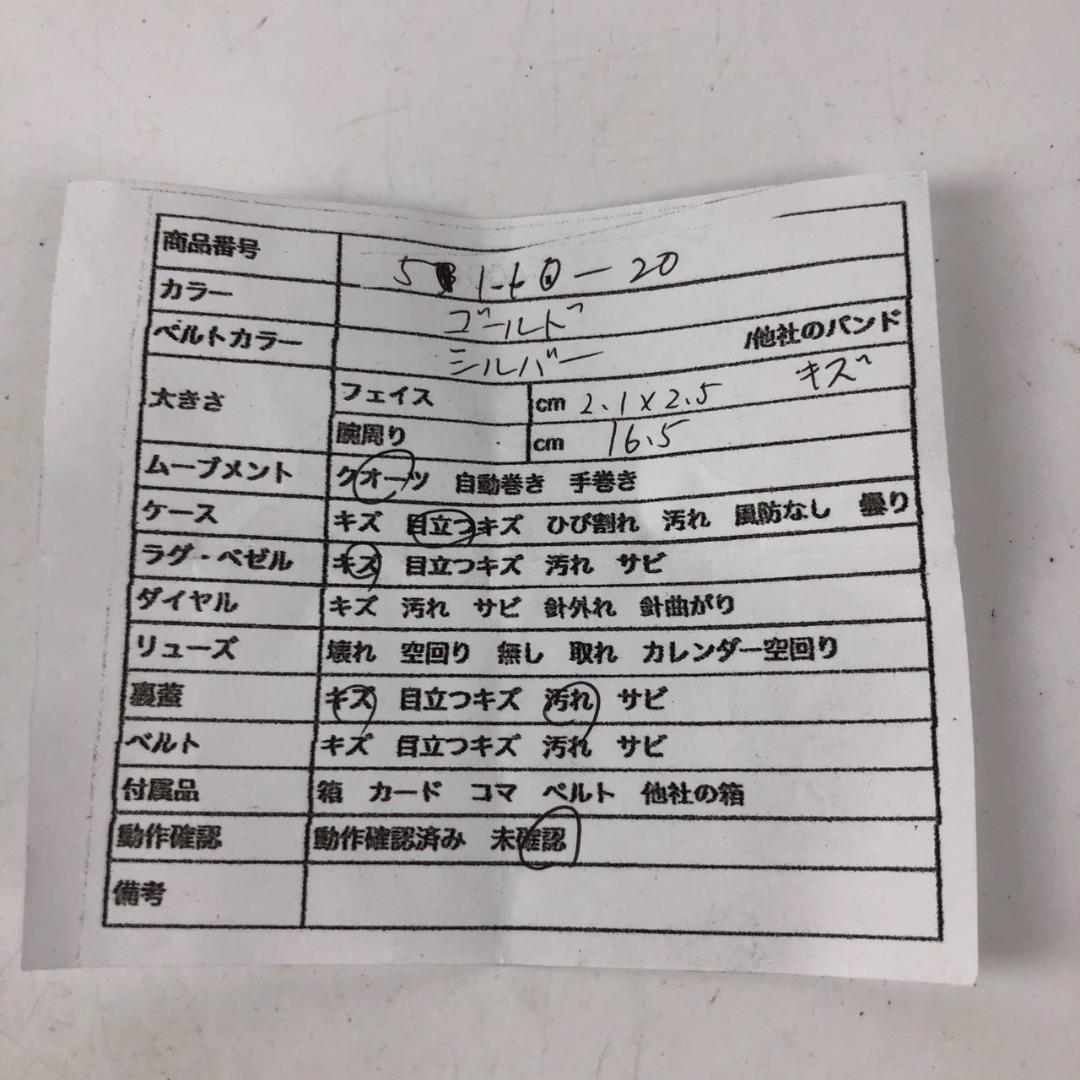 商品番号 5 1-t0-20
カラー ゴールド
ベルトカラー シルバー /他社のバンド
キズ
大きさ フェイス cm 2.1×2.5
腕周り cm 16.5
ムーブメント クオーツ 自動巻き 手巻き
ケース キズ 目立つキズ ひび割れ 汚れ 風防なし 曇り
ラグ・ベゼル キズ 目立つキズ 汚れ サビ
ダイヤル キズ 汚れ サビ 針外れ 針曲がり
リューズ 壊れ 空回り 無し 取れ カレンダー空回り
裏蓋 キズ 目立つキズ 汚れ サビ
ベルト キズ 目立つキズ 汚れ サビ
付属品 箱 カード コマ ベルト 他社の箱
動作確認 動作確認済み 未確認
備考